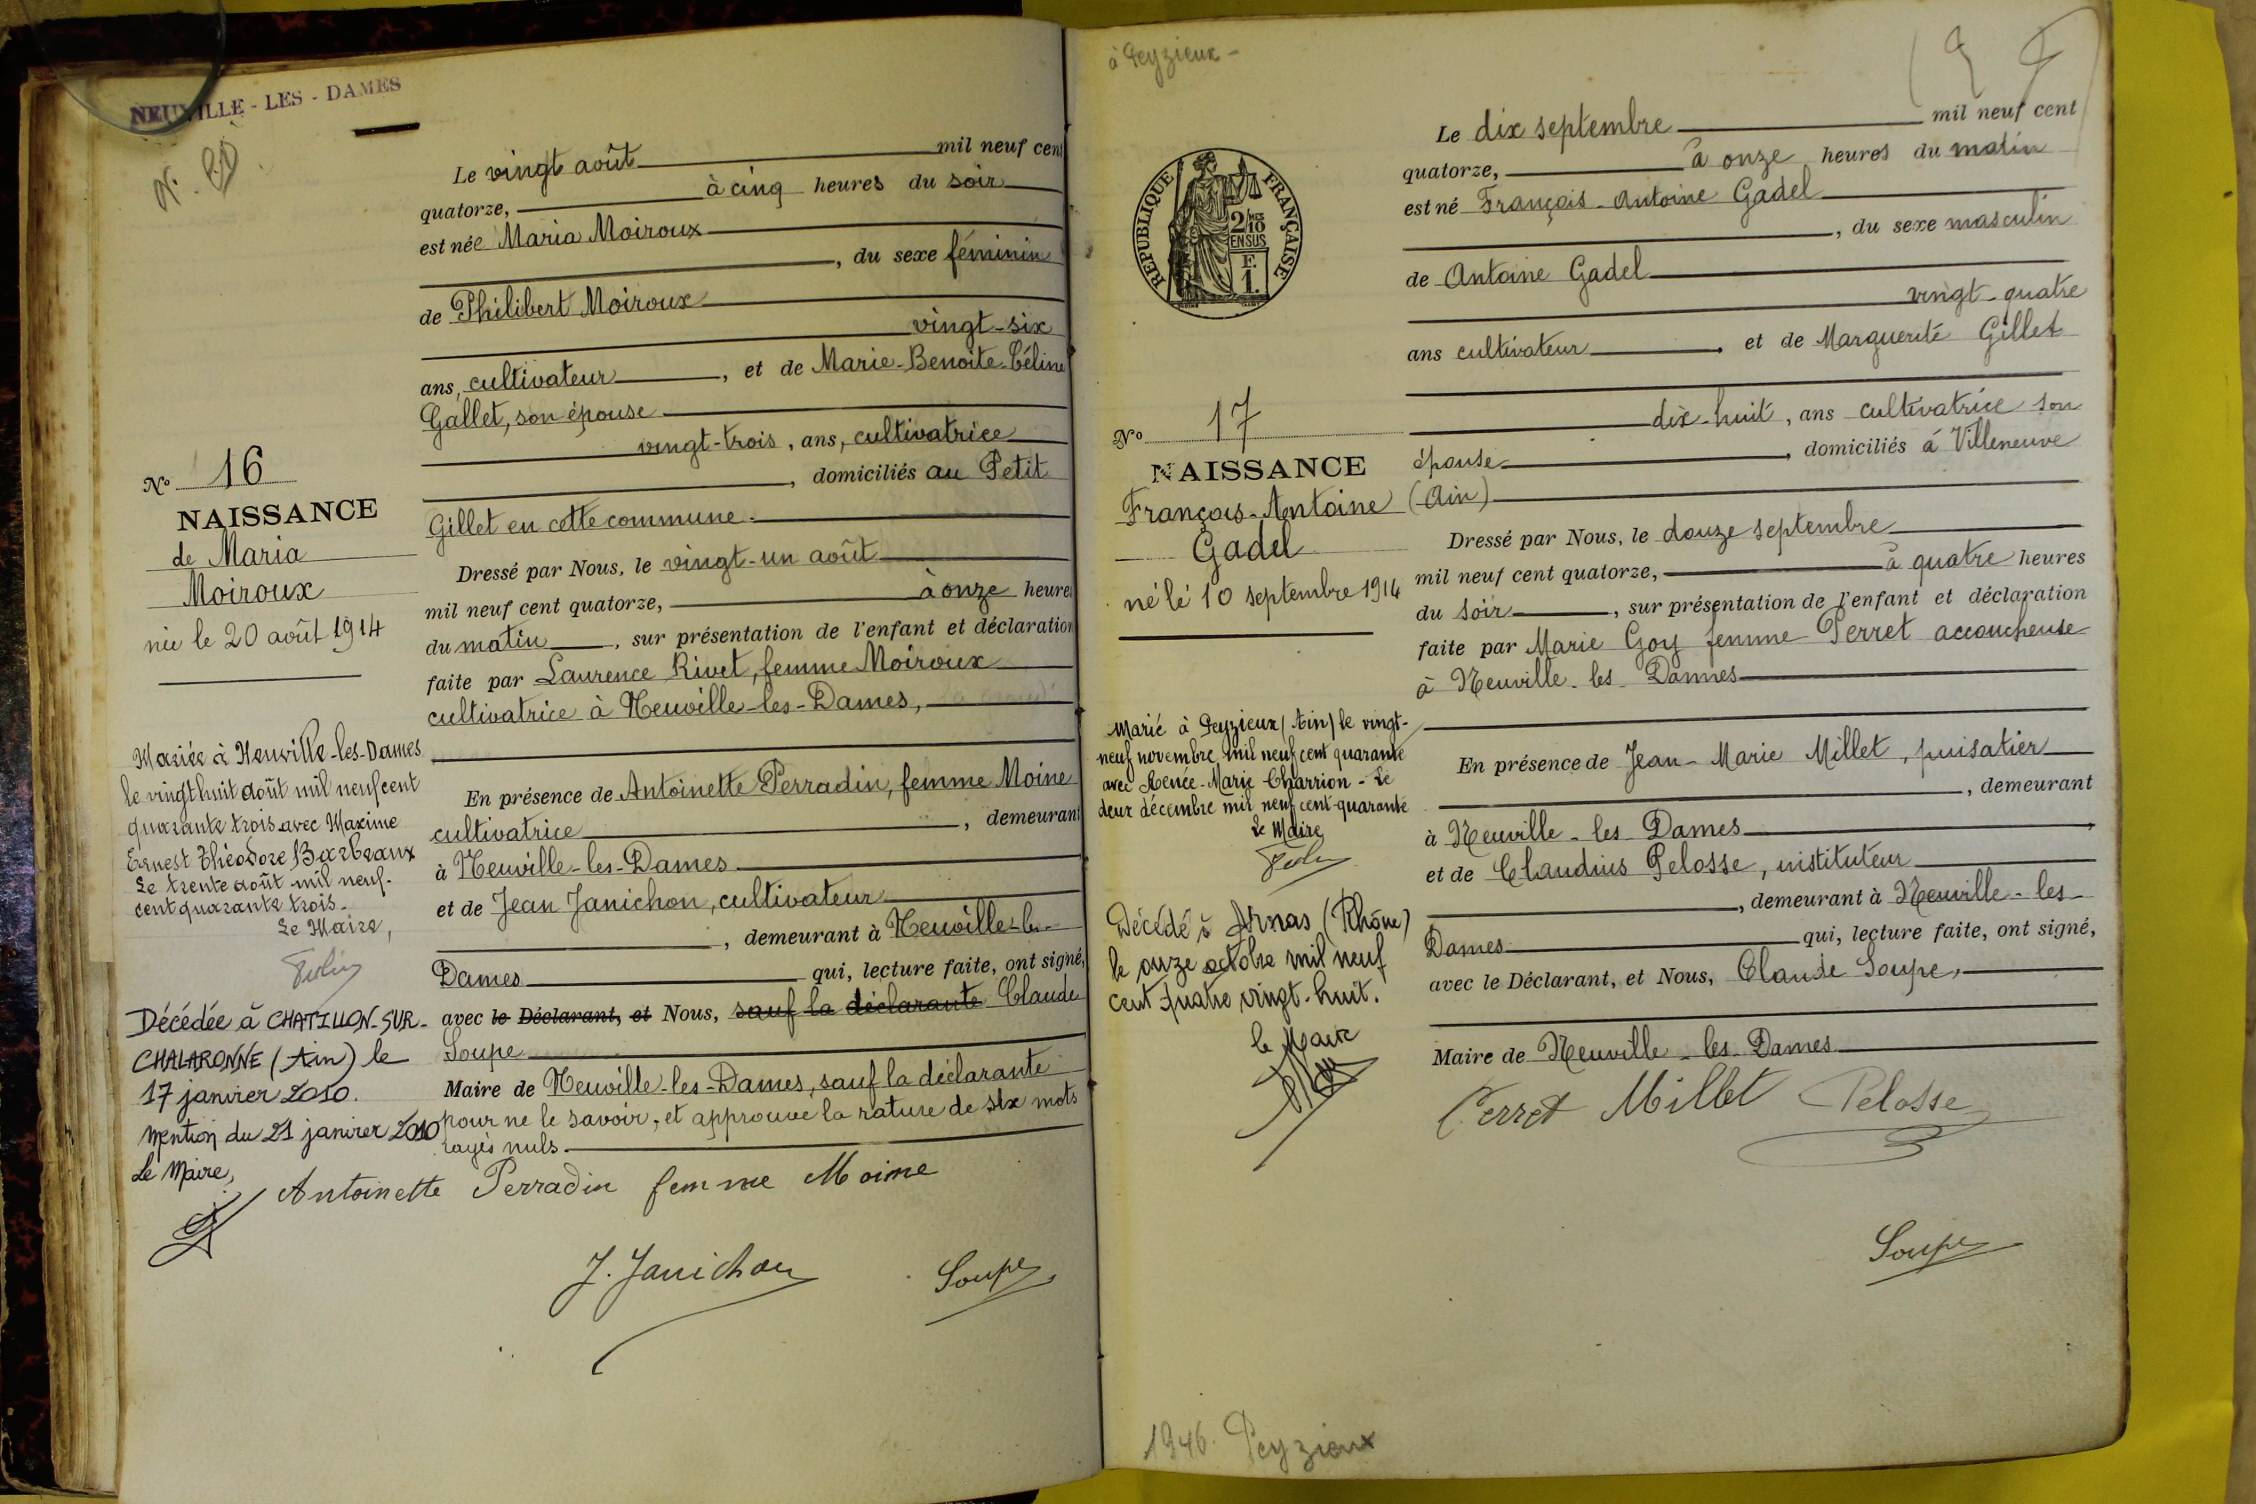 NEUVILLE-LES-DAMES
Le vingt août mil neuf cent
quatorze, à cinq heures du soir
est née Maria Moiroux
, du sexe féminin
de Philibert Moiroux
vingt-six
ans, cultivateur, et de Marie-Benoite-Céline
Gallet, son épouse
vingt-trois, ans, cultivatrice
, domiciliés au Petit
Gillet en cette commune.
Dressé par Nous, le vingt-un août
mil neuf cent quatorze, à onze heures
du matin, sur présentation de l'enfant et déclaration
faite par Laurence Rivet, femme Moiroux
cultivatrice à Neuville-les-Dames,
En présence de Antoinette Perradin, femme Moine
cultivatrice, demeurant
à Neuville-les-Dames
et de Jean Janichon, cultivateur
, demeurant à Neuville-les-
Dames qui, lecture faite, ont signé,
avec le Déclarant, et Nous, sauf la déclarante Claude
Soupe
Maire de Neuville-les-Dames, sauf la déclarante
pour ne le savoir, et approuve la rature de six mots
rayés nuls.
Antoinette Perradin femme Moine
J. Janichon
Soupe
No 16
NAISSANCE
de Maria
Moiroux
née le 20 août 1914
Mariée à Neuville-les-Dames
le vingt huit août mil neuf cent
quarante trois avec Maxime
Ernest Théodore Barbeaux
Le trente août mil neuf-
cent quarante trois.
Le Maire,
Décédée à CHATILLON-SUR-
CHALARONNE (Ain) le
17 janvier 2010.
Mention du 21 janvier 2010
Le Maire,
à Peyzieux -
REPUBLIQUE FRANÇAISE
2/10
EN SUS
F.
1.
No 17
NAISSANCE
François-Antoine
Gadel
né le 10 septembre 1914
Marié à Peyzieux (Ain) le vingt-
neuf novembre mil neuf cent quarante
avec Renée-Marie Charrion - Le
deux décembre mil neuf cent-quarante
Le Maire
Décédé à Arnas (Rhône)
le onze octobre mil neuf
cent quatre vingt-huit.
le Maire
1946. Peyzieux
Le dix septembre mil neuf cent
quatorze, à onze heures du matin
est né François-Antoine Gadel
, du sexe masculin
de Antoine Gadel
vingt-quatre
ans cultivateur, et de Marguerite Gillet
dix-huit, ans cultivatrice son
épouse, domiciliés à Villeneuve
(Ain)
Dressé par Nous, le douze septembre
mil neuf cent quatorze, à quatre heures
du soir, sur présentation de l'enfant et déclaration
faite par Marie Goy femme Perret accoucheuse
à Neuville-les-Dames
En présence de Jean-Marie Millet, puisatier
, demeurant
à Neuville-les Dames,
et de Claudius Pelosse, instituteur
, demeurant à Neuville-les-
Dames qui, lecture faite, ont signé,
avec le Déclarant, et Nous, Claude Soupe,
Maire de Neuville-les-Dames
Perret Millet Pelosse
Soupe